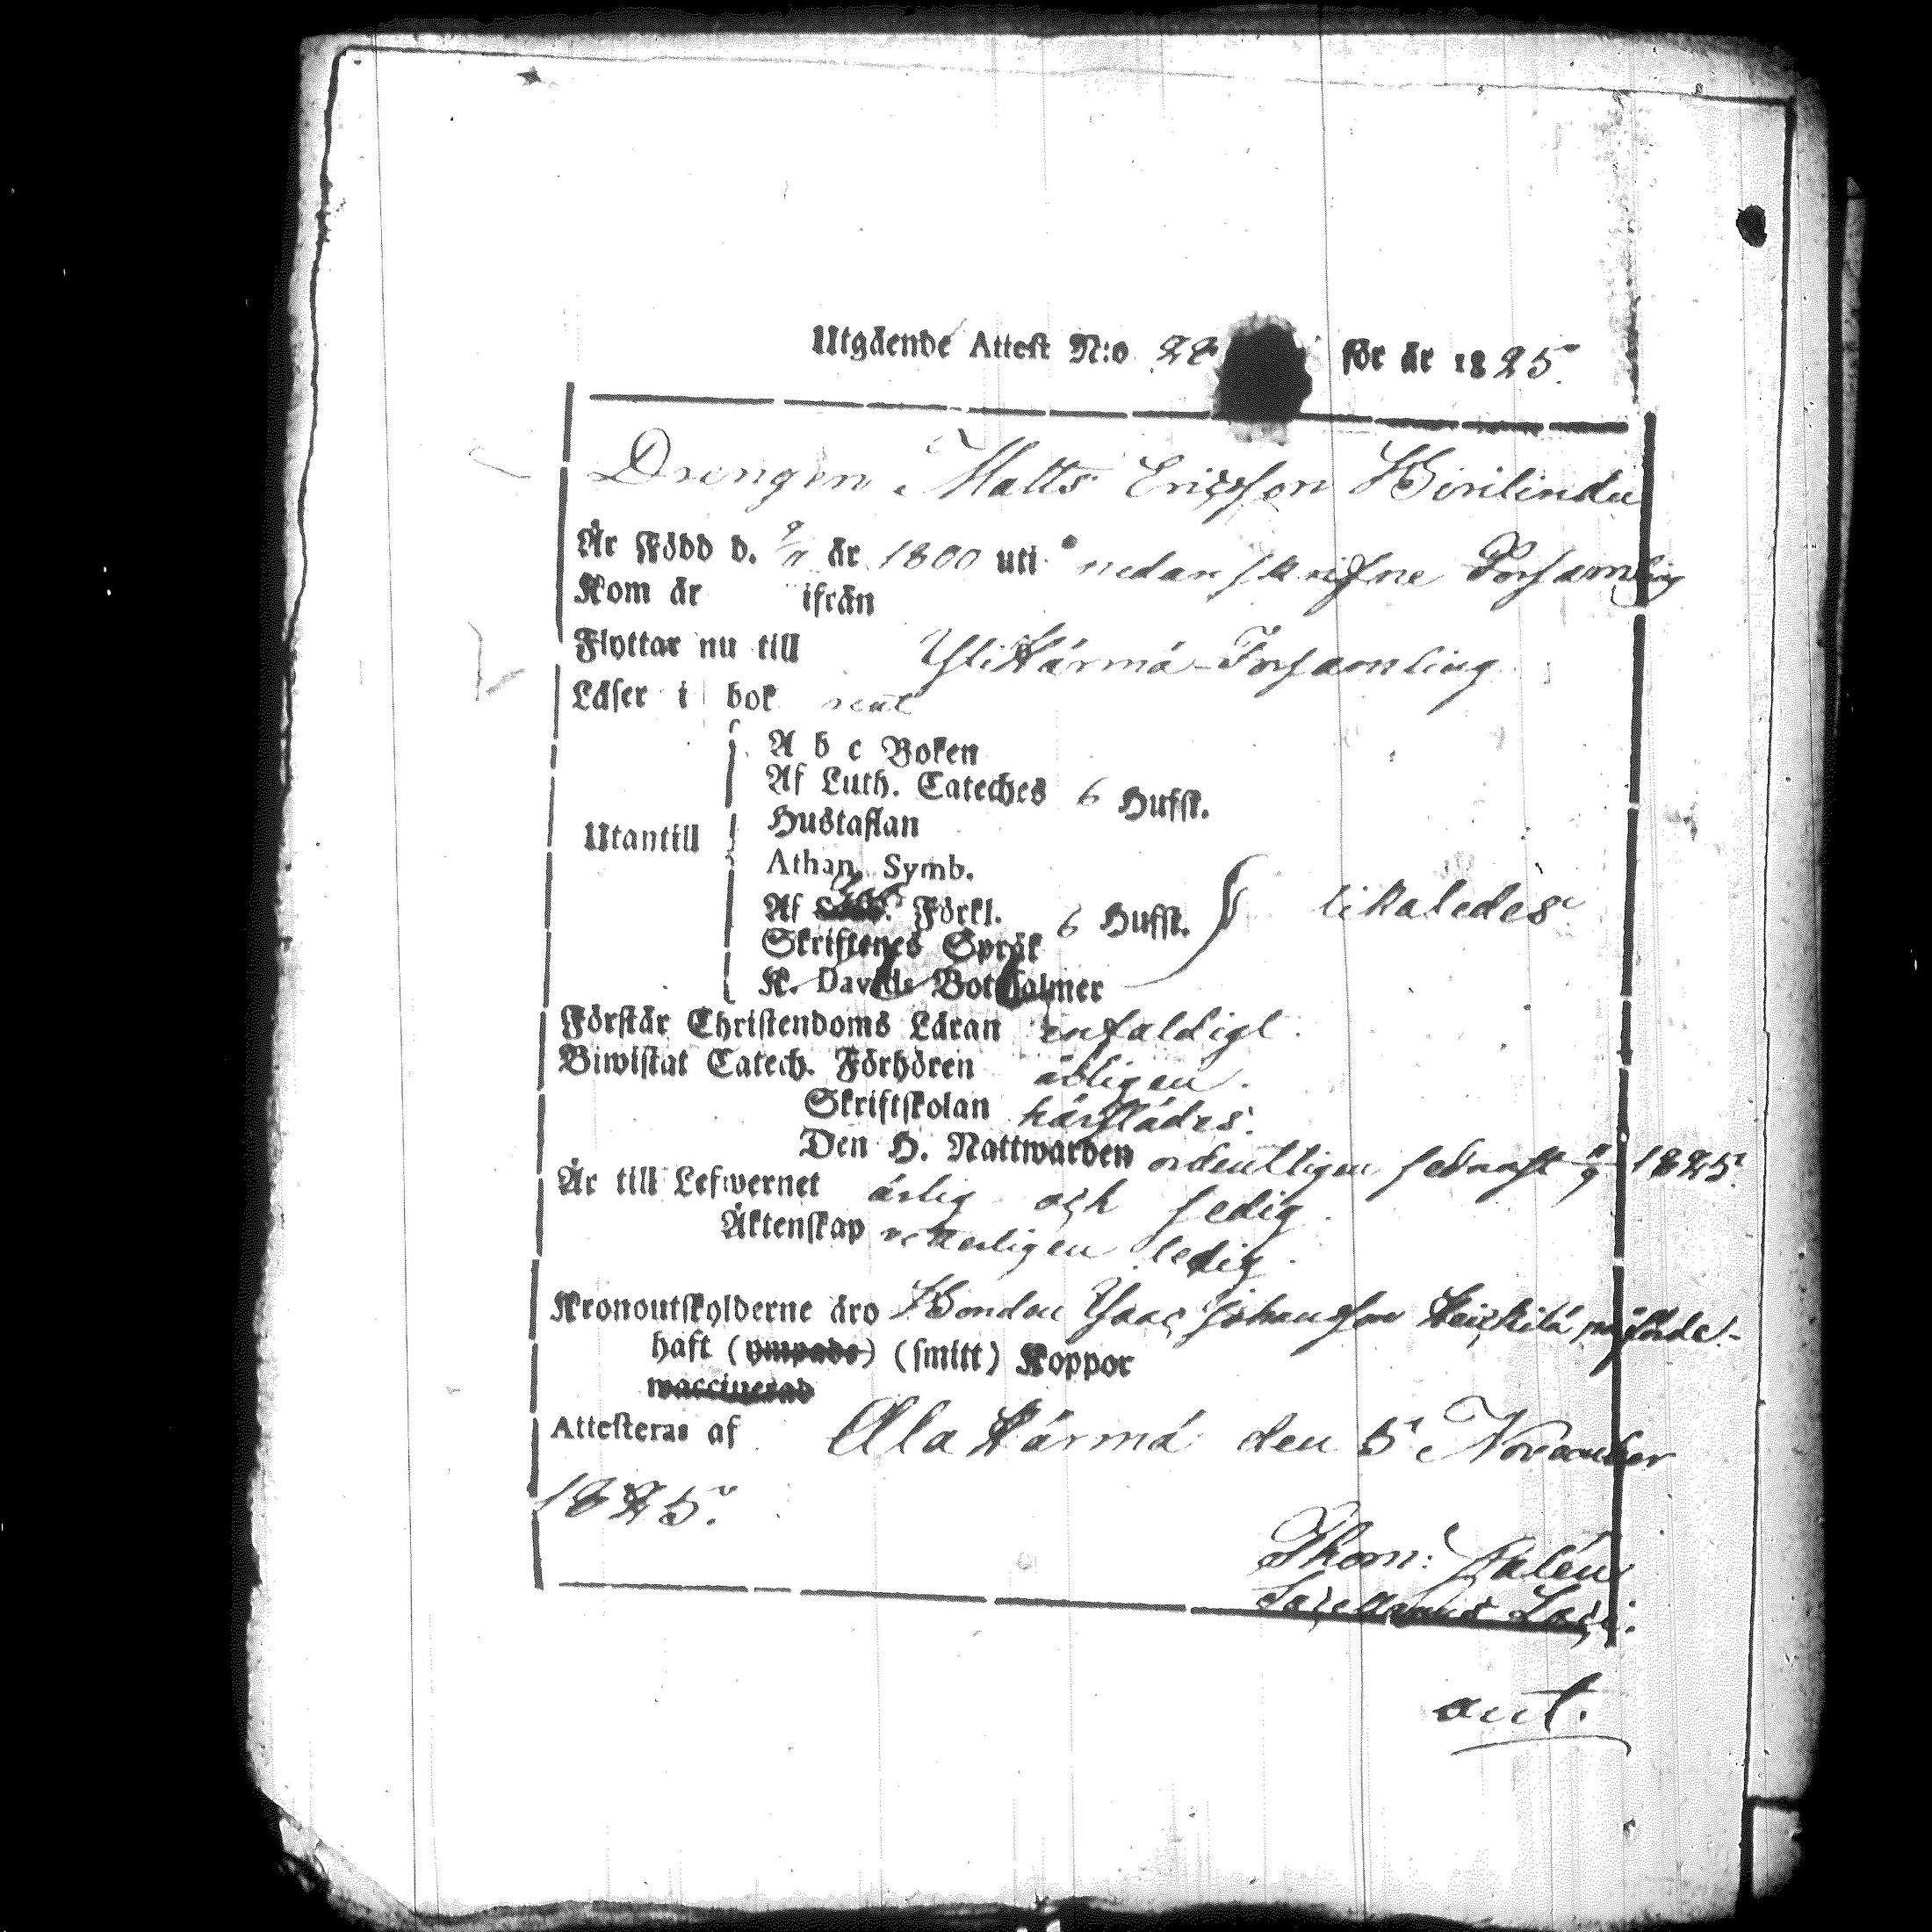 Utgående Attest N:o 28 för år 1825.
Drengen Matts Ericsson
Är Född d. 9/11 år 1800 uti nedanskrifne Församling
Kom år ifrån
Flyttar nu till YliHärmä Församling
Läser i bok rent
A b c Boken
Af Luth. Cateches 6 Hufst.
Hustaflan
Utantill
Athan. Symb.
Af Förkl. 6 Hufst. likaledes
Skriftenes Språk
K. Davids Botpsalmer
Förstår Christendoms Läran enfaldigt.
Biwistat Catech. Förhören årligen.
Skriftskolan härstädes.
Den H. Nattwarden ordentligen sednast 11/9 1825.
Är till Lefwernet ärlig och sedig.
Äktenskap vetterligen ledig.
Kronoutskylderne äro Bonden Ysaac Johansson Heickilä påförde.
haft (ympade) (smitt) Koppor
waccinerad
Attesteras af Ala Härmä den 5 November
1825.
Thom: Salén
Sacellanus Loci.